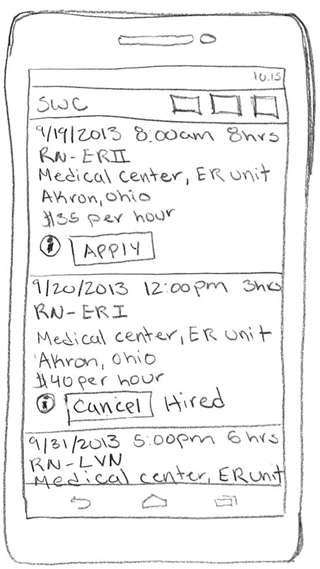 10:15
SWC
9/19/2013 8:00am 8hrs
RN-ERII
Medical center, ER unit
Akron, Ohio
$35 per hour
i APPLY
9/20/2013 12:00pm 3hrs
RN-ERI
Medical center, ER unit
Akron, Ohio
$40 per hour
i Cancel Hired
9/31/2013 5:00pm 6hrs
RN-LVN
Medical center, ER unit